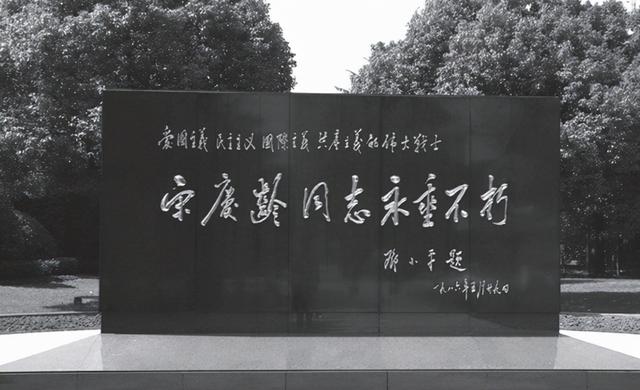 爱国主义 民主主义 国际主义 共产主义的伟大战士
宋庆龄同志永垂不朽
邓小平题
一九八六年五月廿九日